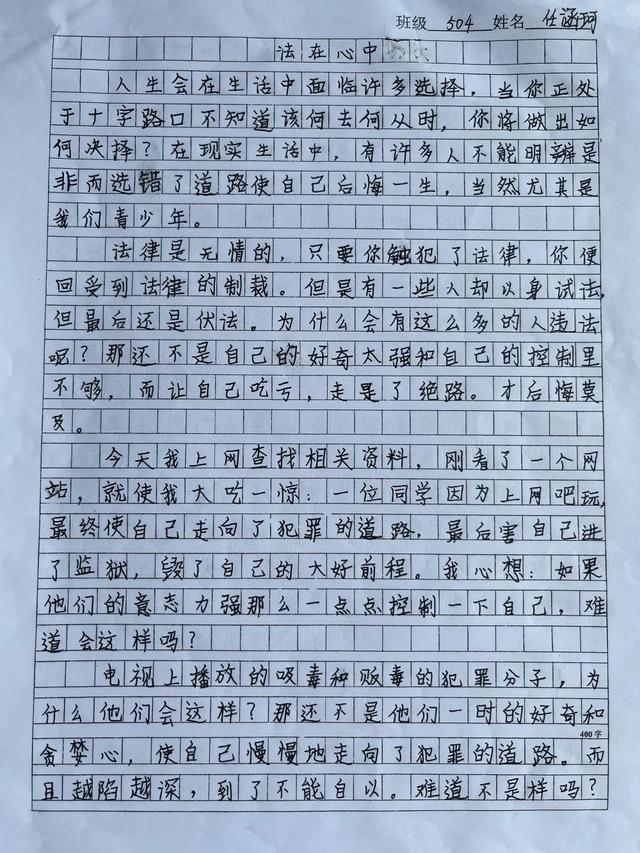 班级 504 姓名 任涵珂
法在心中
人生会在生活中面临许多选择，当你正处
于十字路口不知道该何去何从时，你将做出如
何决择？在现实生活中，有许多人不能明辨是
非而选错了道路使自己后悔一生，当然尤其是
我们青少年。
法律是无情的，只要你触犯了法律，你便
回受到法律的制裁。但是有一些人却以身试法，
但最后还是伏法。为什么会有这么多的人违法
呢？那还不是自己的好奇太强和自己的控制里
不够，而让自己吃亏，走是了绝路。才后悔莫
及。
今天我上网查找相关资料，刚看了一个网
站，就使我大吃一惊：一位同学因为上网吧玩，
最终使自己走向了犯罪的道路，最后害自己进
了监狱，毁了自己的大好前程。我心想：如果
他们的意志力强那么一点点控制一下自己，难
道会这样吗？
电视上播放的吸毒和贩毒的犯罪分子，为
什么他们会这样？那还不是他们一时的好奇和
400字
贪婪心，使自己慢慢地走向了犯罪的道路。而
且越陷越深，到了不能自以。难道不是样吗？